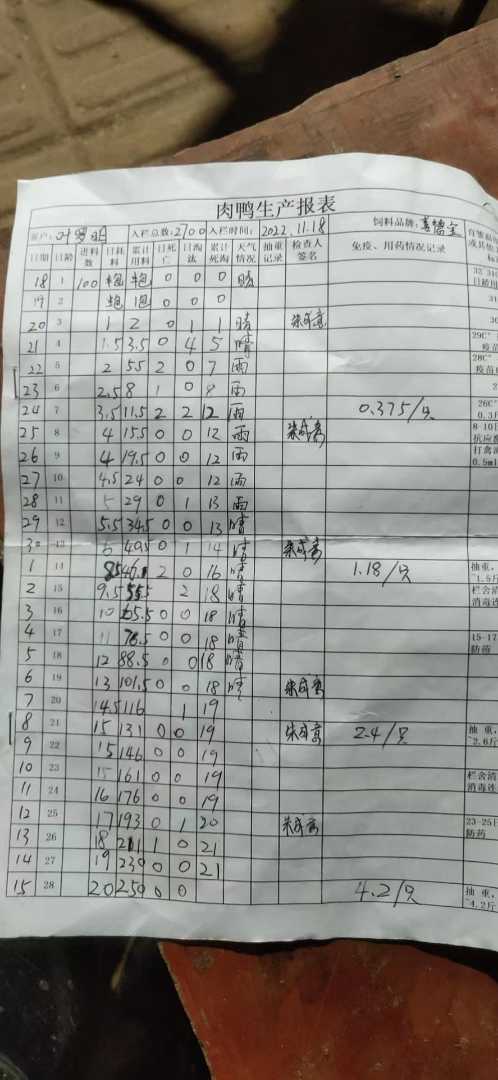 肉鸭生产报表
客户: 入栏总数:2700 入栏时间: 2022.11.18 饲料品牌:
日期 日龄 进料数 日耗料 累计用料 日死亡 日淘汰 累计死淘 天气情况 抽重记录 检查人签名 免疫、用药情况记录
18 1 100 0 0 0 晴
19 2 0 0 0
20 3 1 2 0 1 1 晴
21 4 1.5 3.5 0 4 5 晴 29C°
22 5 2 5.5 2 0 7 雨 28C°
23 6 2.5 8 1 0 8 雨
24 7 3.5 11.5 2 2 12 雨 0.375/只 26C°
25 8 4 15.5 0 0 12 雨 8-10日
26 9 4 19.5 0 0 12 雨
27 10 4.5 24 0 0 12 雨
28 11 5 29 0 1 13 雨
29 12 5.5 34.5 0 0 13 晴
30 13 6 40.5 0 1 14 晴
1 14 2 0 16 晴 1.18/只 抽重,
2 15 9.5 2 18 晴 栏舍消
3 16 10 65.5 0 0 18 晴 消毒连
4 17 11 76.5 0 0 18 晴 15-17
5 18 12 88.5 0 0 18 晴 防菌
6 19 13 101.5 0 0 18 晴
7 20 14.5 116 1 19
8 21 15 131 0 0 19 2.4/只 抽重,
9 22 15 146 0 0 19 ~2.6斤
10 23 15 161 0 0 19 栏舍消
11 24 16 176 0 0 19 消毒连
12 25 17 193 0 1 20 23-25日
13 26 18 211 1 0 21 防菌
14 27 19 230 0 0 21
15 28 20 250 0 0 4.2/只 抽重,
~4.2斤